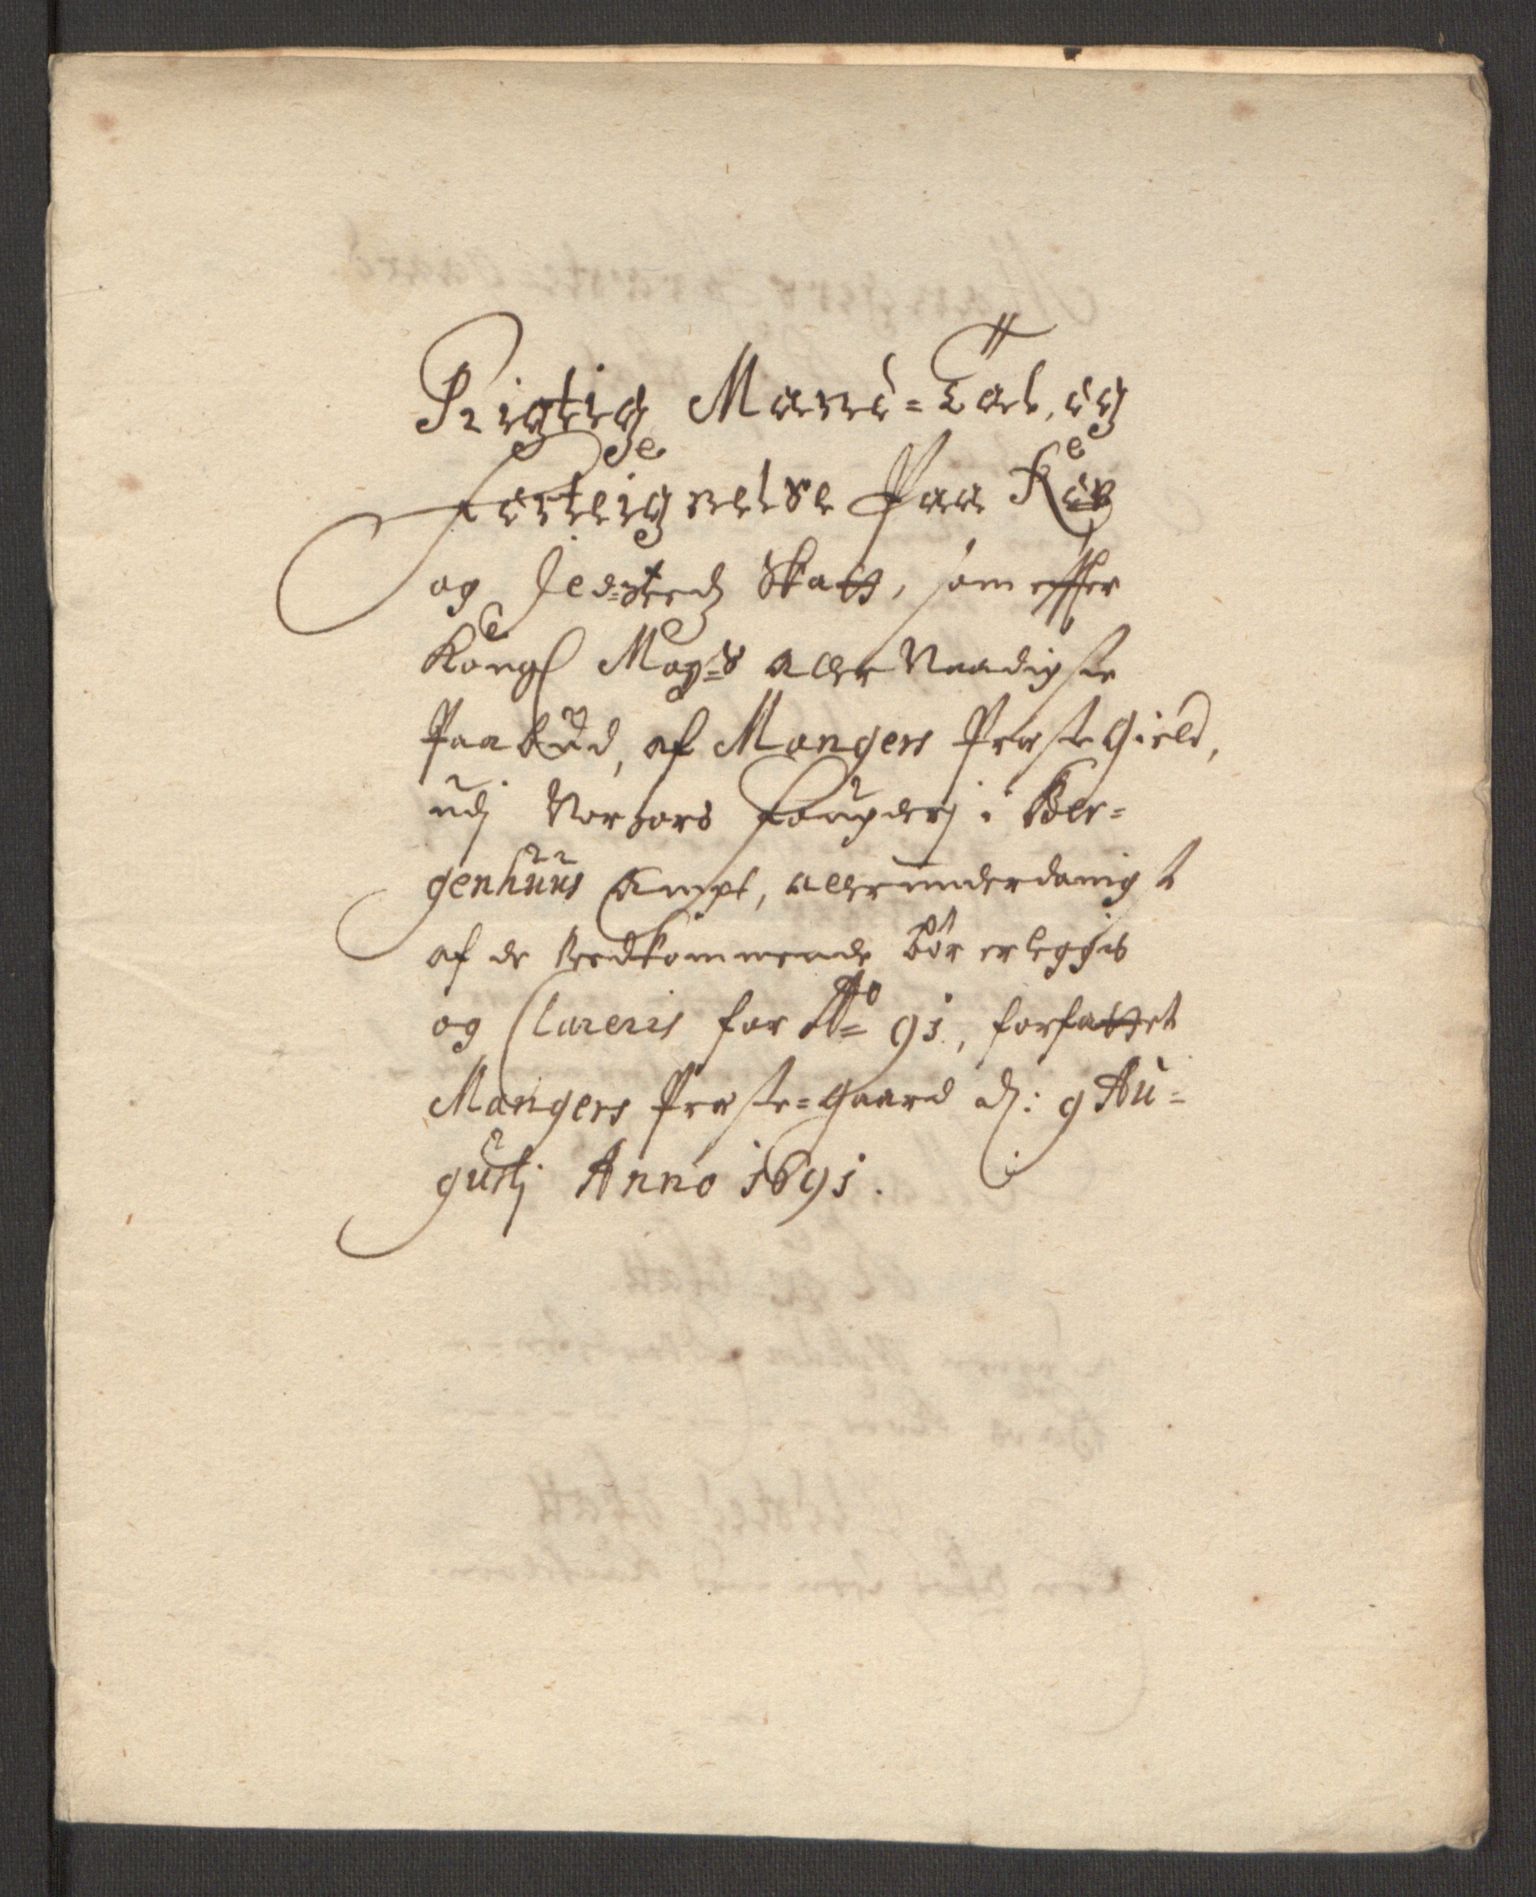 Rigtig Mand-Tal, og
Forteignelse Paa Kop
og Ildsteds Skatt, som effter
Kongl May:s Aller Naadigste
Paabud, af Mangers PræsteGield,
udj Norhors fougderj i Ber=
genhuus Ampt, allerunderdanigst
af de Vedkommende bør erleggis
og Clareris for Ao 91, forfattet
Mangers Præste=Gaard d: 9 Au=
gustj Anno 1691.